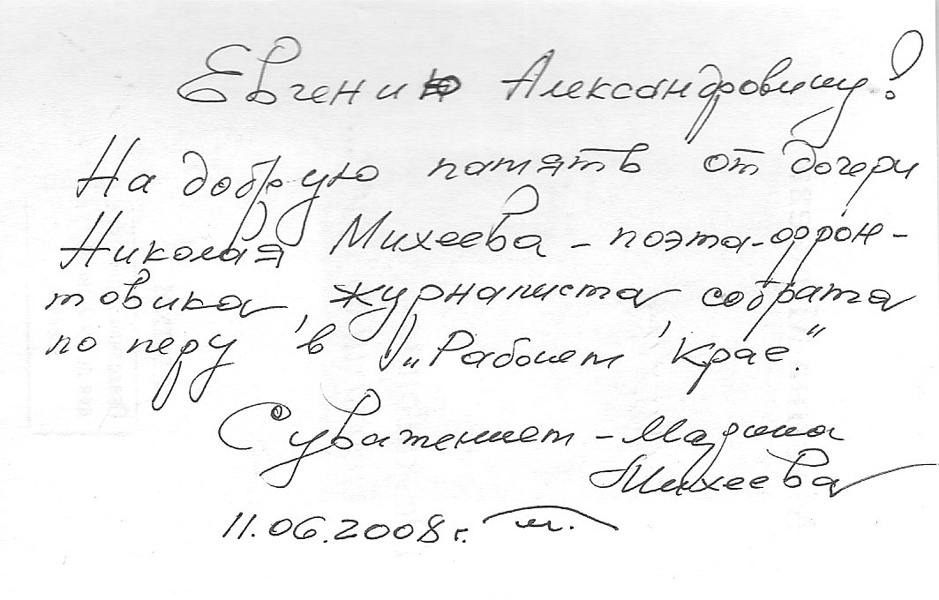 Евгению Александровичу!
На добрую память от дочери
Николая Михеева - поэта-фрон-
товика, журналиста, собрата
по перу в „Рабочем крае."
С уважением -
Михеева
11.06.2008 г.